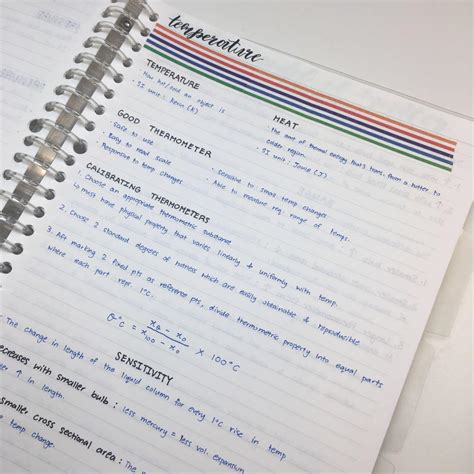 temperature
TEMPERATURE
· How hot/cold an object is
· SI Unit : Kelvin (K)
HEAT
· The amt of thermal energy that's trans. from a hotter to
colder region.
· SI unit : Joule (J)
GOOD THERMOMETER
· Safe to use
· Easy to read scale
· Responsive to temp changes
· Sensitive to small temp changes
· Able to measure req. range of temps.
CALIBRATING THERMOMETERS
1. Choose an appropriate thermometric substance
↳ must have physical property that varies linearly + uniformly with temp.
2. Choose 2 standard degrees of hotness which are easily obtainable & reproducible
3. Aft marking 2 fixed pts as reference pts, divide thermometric property into equal parts
where each part rep. 1°C.
θ°C = (xθ - x0) / (x100 - x0) × 100°C
SENSITIVITY
The change in length of the liquid column for every 1°C rise in temp
ecreases with smaller bulb : less mercury = less vol. expansion
↑ in length.
smaller cross sectional area : The
temp change.